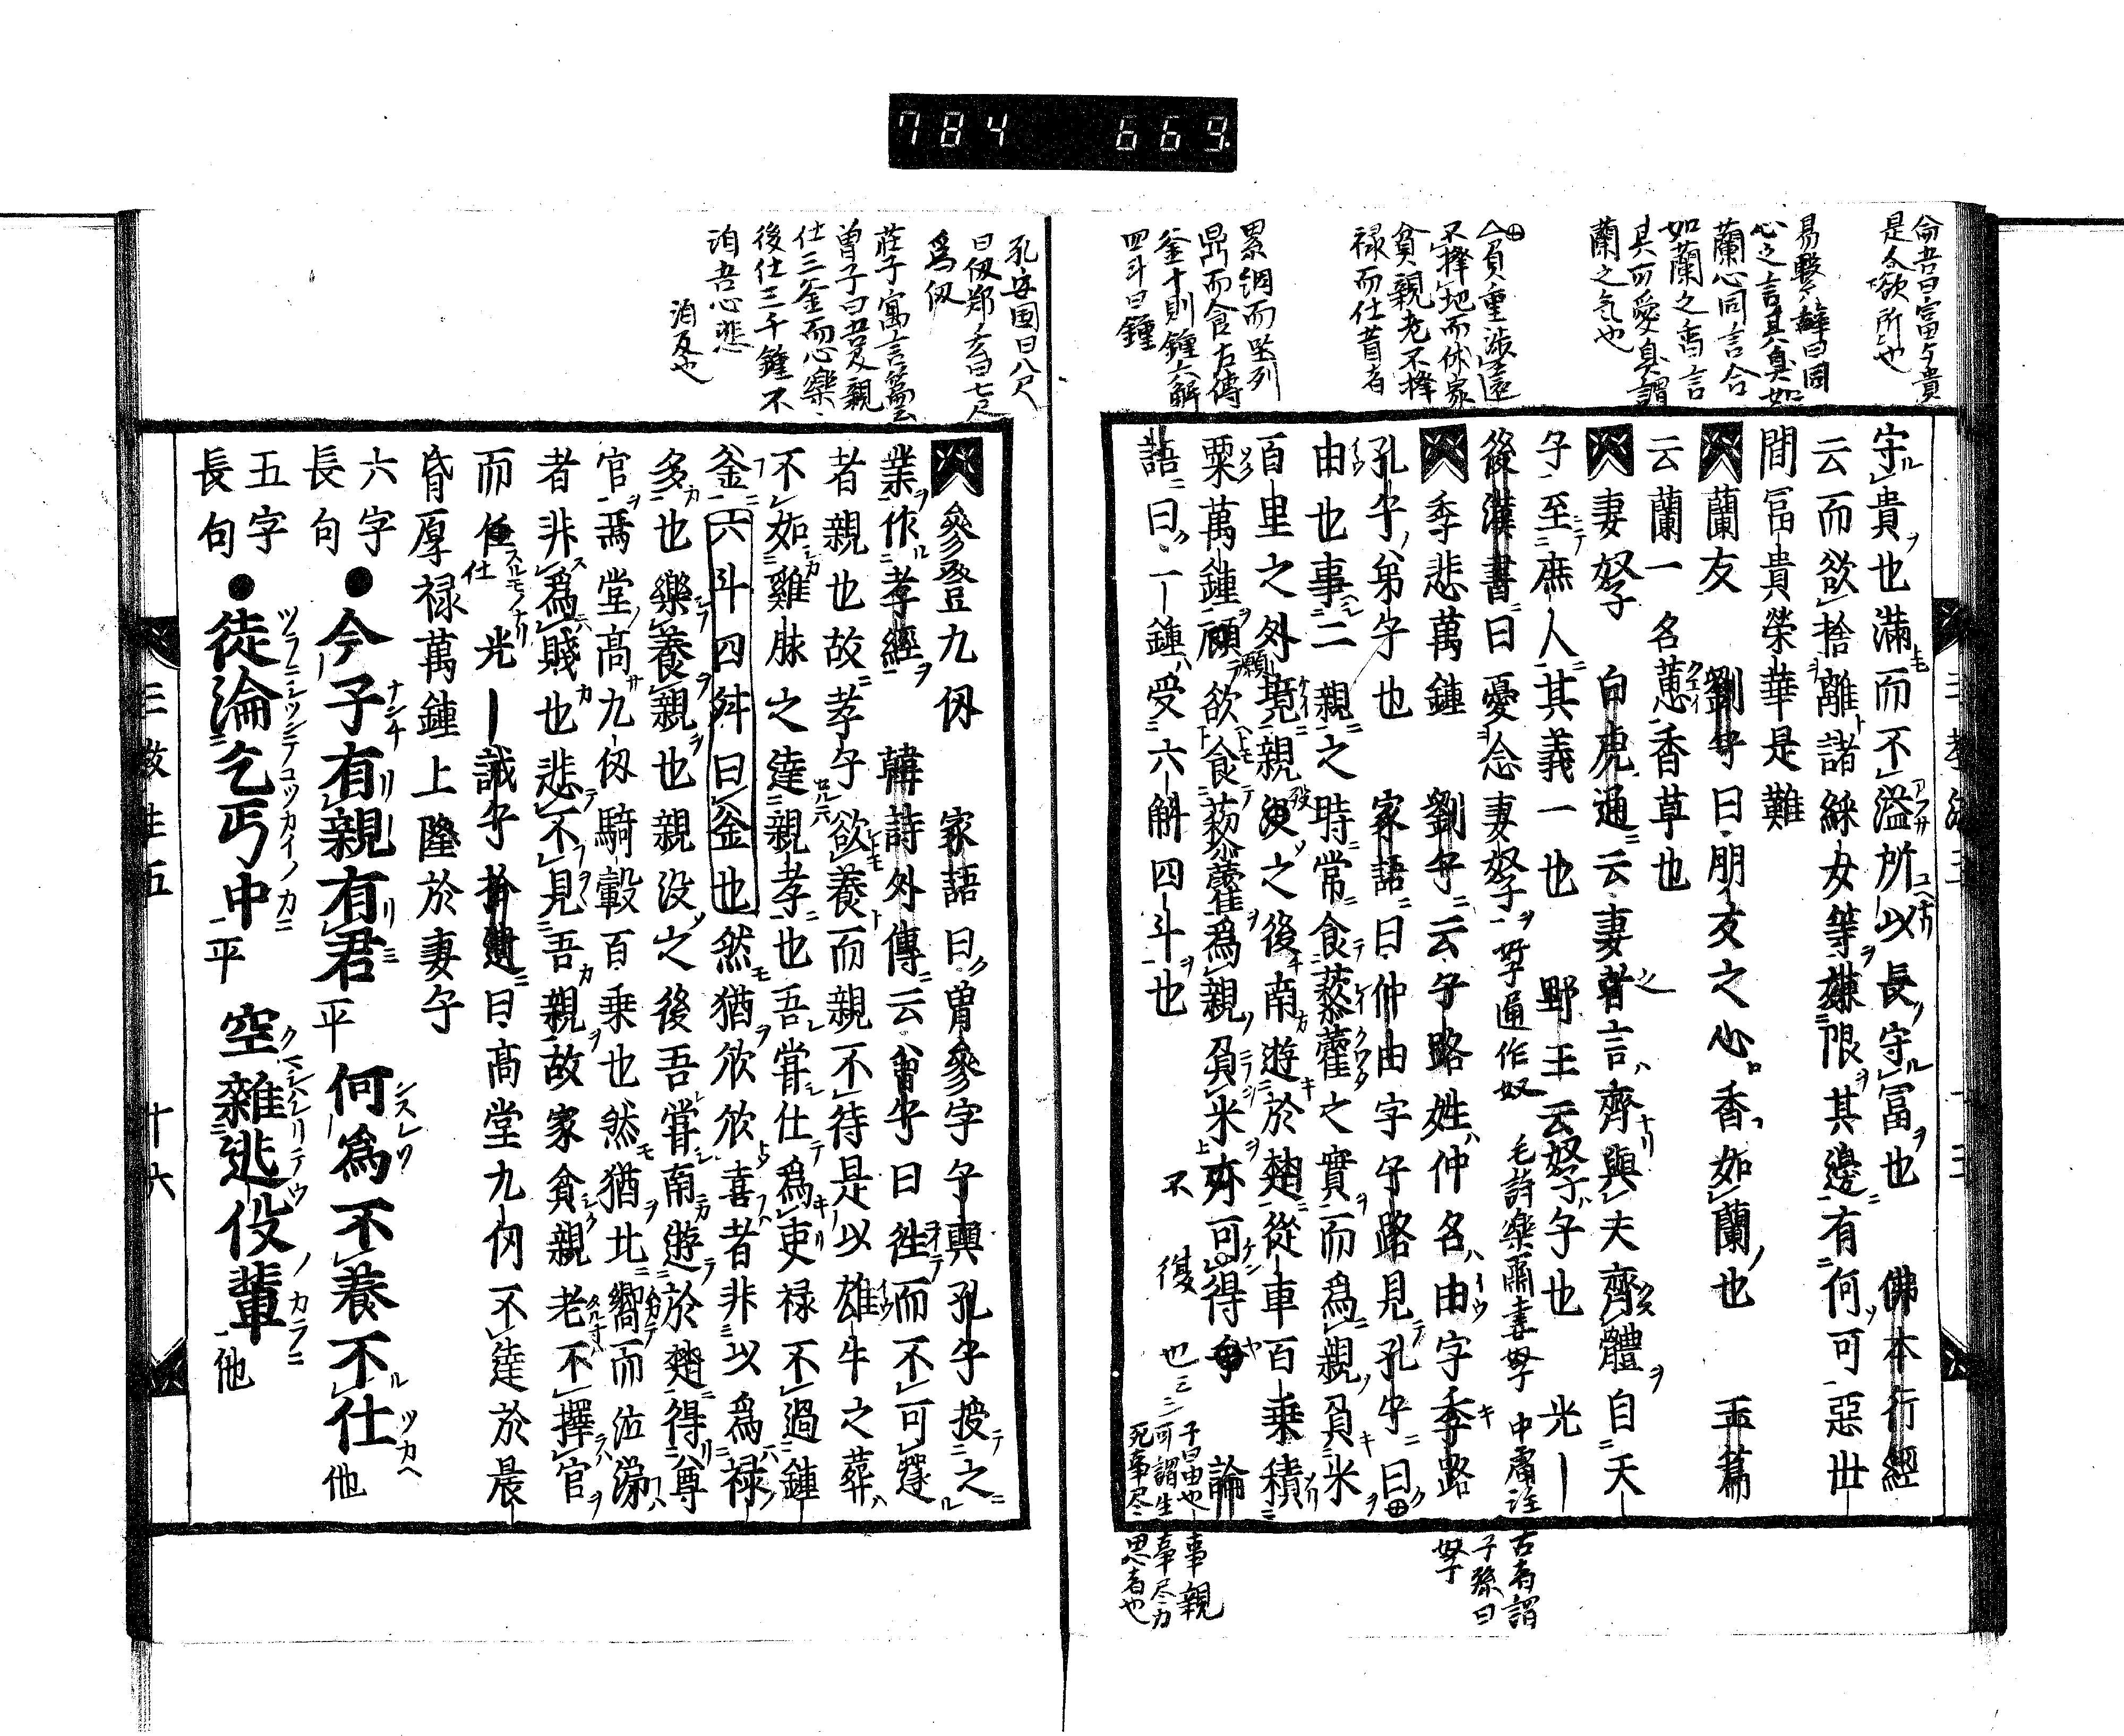 784 669
論吾曰富與貴
是人欲所也
易繫辭曰同
心之言其臭如
蘭心同言合
如蘭之香言
其可愛臭謂
蘭之気也
負重渉遠
不擇地而休家
貧親老不擇
禄而仕昔者
累絪而坐列
鼎而食左傳
釜十則鍾六斛
四斗曰鍾
守貴也滿而不溢所以長守冨也 佛本行經
云而欲捨離諸綵女等嫌限其邊有何可惡世
間冨貴榮華是難
蘭友 劉子曰朋友之心香如蘭也 玉篇
云蘭一名蕙香草也
妻孥 白虎通云妻者言齊與夫齊體自天
子至庶人其義一也 野王云孥子也 光ー
後漢書曰憂念妻孥 孥通作奴 毛詩樂爾妻孥 中庸注 古者謂
子孫曰
孥
季悲萬鍾 劉子云子路姓仲名由字季路
孔子弟子也 家語曰仲由字子路見孔子曰
由也事二親之時常食藜藿之實而爲親負米
百里之外親没之後南遊於楚從車百乗積
粟萬鍾願欲食藜藿爲親負米不可復得也 論
語曰一鍾受六斛四斗也
子曰由也事親
可謂生事尽力
死事尽思者也
孔安国曰八尺
曰仭鄭玄曰七尺
為仭
莊子寓言篇云
曽子曰吾及親
仕三釜而心樂
後仕三千鍾不
洎吾心悲
洎及也
參登九仭 家語曰曽參字子輿孔子授之
業作孝經 韓詩外傳云曽子曰徃而不可還
者親也故孝子欲養而親不待是以雄牛之葬
不如雞豚之逮親孝也吾甞仕爲吏禄不過鍾
釜六斗四舛曰釜也然猶欣欣喜者非以爲禄
多也樂養親也親没之後吾甞南遊於楚得尊
官焉堂高九仭騎轂百乗也然猶北嚮而泣涕
者非爲賤也悲不見吾親故家貧親老不擇官
而仕 光ー誡子拾遺曰高堂九仭不逮於晨
昏厚禄萬鍾上隆於妻子
六字 長句
●今子有親有君平 何爲不養不仕他
五字 長句
●徒淪乞丐中平 空雜逃役輩他
三教 五 十六